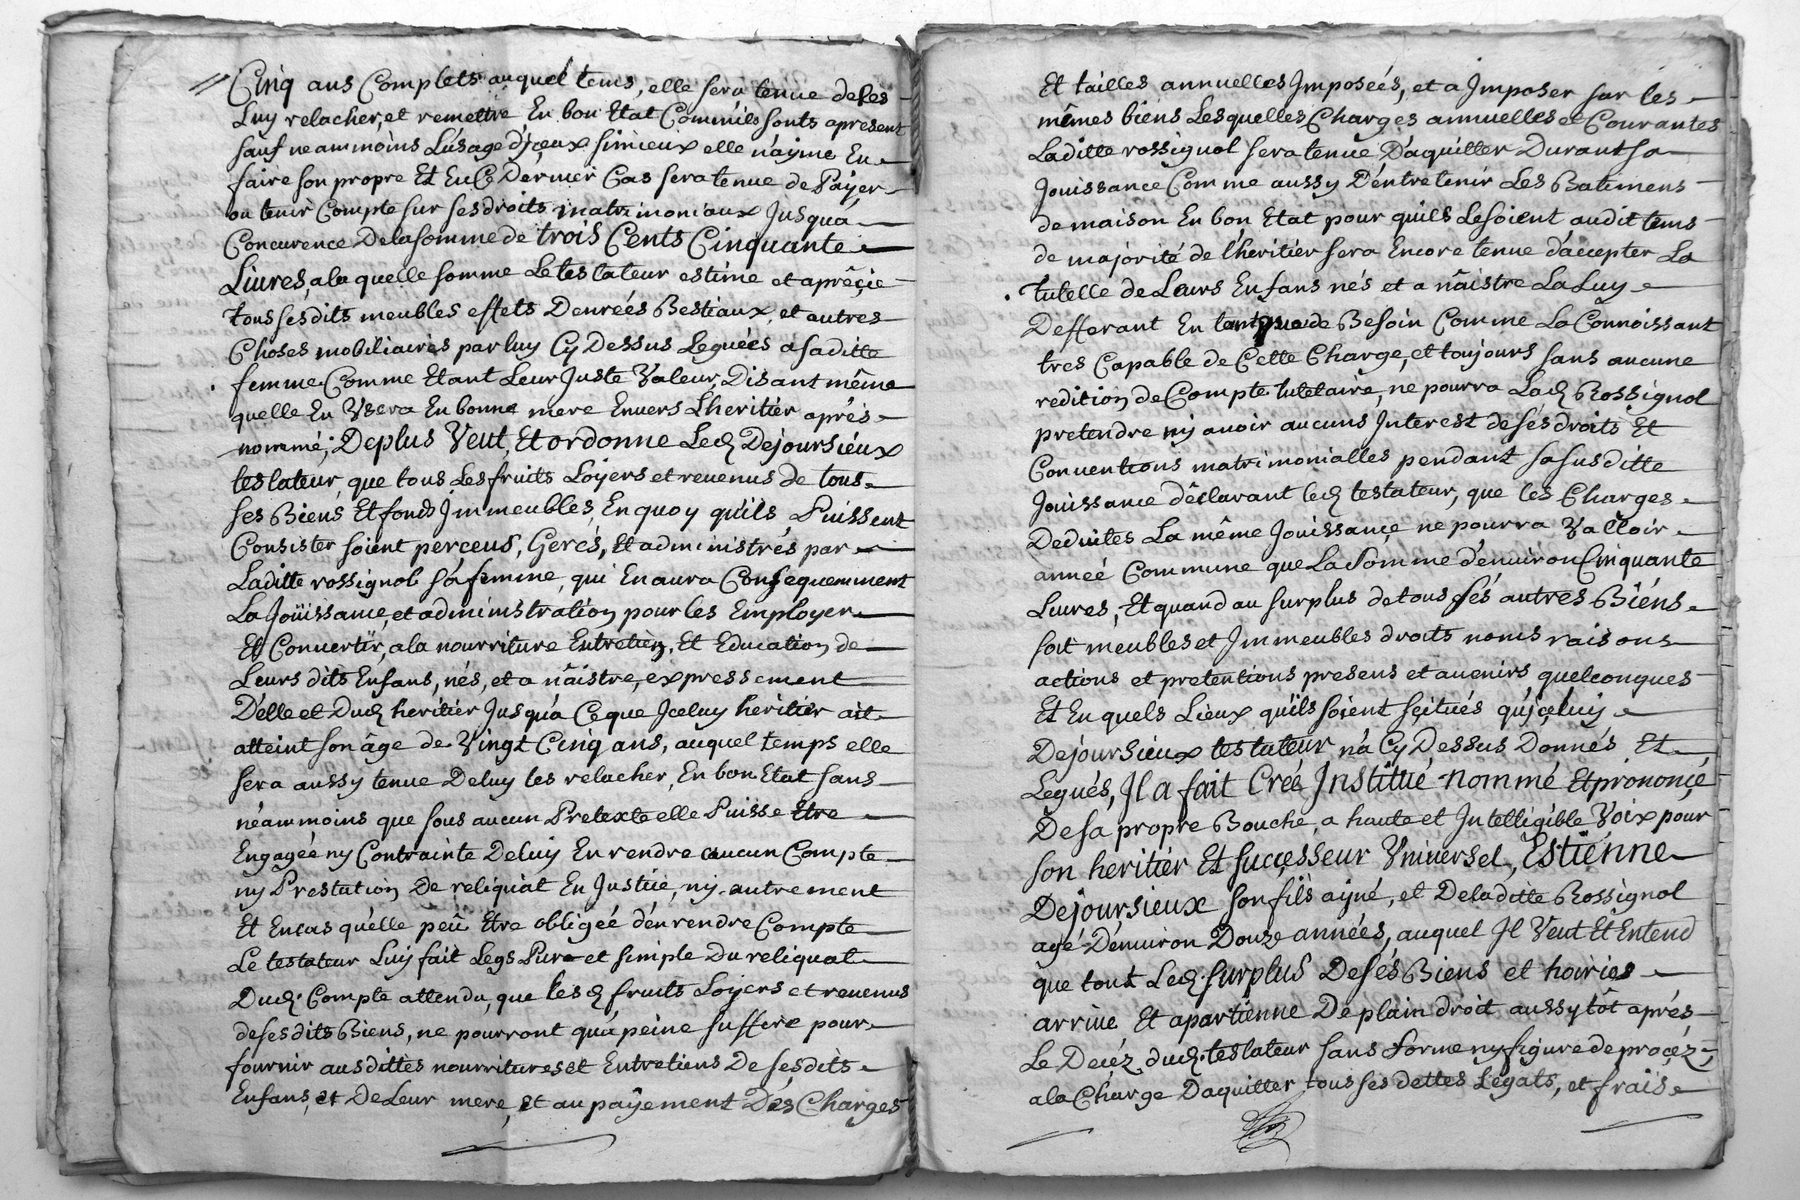 Cinq ans Complets auquel tems, elle sera tenue deles
Luy relacher, et remettre En bon Etat Comm'ils sonts apresent
sauf neammoins L'usage d'jceux sinieux elle n'ayme En
faire son propre Et En Ce Dernier Cas sera tenue de Päyer
ou tenir Compte sur ses droits matrimoniaux Jusqu'a
Concurence De la somme de trois Cents Cinquante
Livres, ala quelle somme Le testateur estime et aprêçie
tous ses dits meubles effets Denreés Bestiaux, et autres
Choses mobiliaires par luy Cy Dessus Leguéés a saditte
femme Comme Etant Leur Juste Valeur, Disant même
quelle En Vsera En bonne mere Envers L'heritier aprés
nommé; De plus Veut, Et ordonne Led Dejoursieux
testateur, que tous Les fruits Loÿers et revenus de tous
ses Biens Et fonds Jmmeubles, En quoy qu'ils Puissent
Consister soient perceus, Gerés, Et administrés par
Laditte rossignol sa femme, qui En aura Consequemment
La Joüissance, et administration pour les Employer
Et Convertir, ala nourriture Entretien, Et Education de
Leurs dits Enfans, nés, et a nâistre, expressement
D'elle et Dud heritier Jusqu'a Ce que Jceluy heritier ait
atteint son âge de Vingt Cinq ans, auquel temps elle
sera aussy tenue De luy les relacher, En bon Etat sans
néammoins que sous aucun Pretexte elle Puisse Etre
Engagée ny Contrainte De luy En rendre aucun Compte
ny Prestation De reliquat En Justice, ny autrement
Et En cas qu'elle peû Etre obligeé d'en rendre Compte
Le testateur Luy fait Legs Pure et simple Du reliquat
Dud. Compte attendu, que les d fruits Loyers et revenus
de ses dits Biens, ne pourront qu'a peine suffire pour
fournir ausdittes nourritures et Entretiens De ses dits
Enfans, et De Leur mere, et au païement Des Charges
Et tailles annuelles Jmposeés, et a Jmposer sur les
mêmes biens Lesquelles Charges annuelles et Courantes
Laditte rossignol sera tenue D'aquitter Durant sa
Jouissance Comme aussy D'entretenir Les Batimens
de maison En bon Etat pour quils Le soient audit tems
de majorité de l'heritier sera Encore tenue d'accepter La
tutelle de Leurs Enfans nés et a nâistre La Luy
Defferant En tant que de Besoin Comme La Connoissant
tres Capable de Cette Charge, et toujours sans aucune
redition de Compte tutelaire, ne pourra Lad Rossignol
pretendre ny avoir aucuns Jnterest de ses droits Et
Conventions matrimonialles pendant sa susditte
Jouissance déclarant led testateur, que les Charges
Deduites La même Jouissançe ne pourra Valloir
anneé Commune que La Somme d'environ Cinquante
Livres, Et quand au surplus de tous sés autres Biens
soit meubles et Jmmeubles droits noms raisons
actions et pretentions presens et avenirs quelconques
Et En quels Lieux qu'ils soient sçitués qu'jceluy
Dejoursieux testateur n'a Cy Dessus Donnés Et
Legués, Jl a fait Créé Jnstitué nommé Et prononçé
De sa propre Bouche, a haute et Jntelligible Voix pour
son heritier Et sucçesseur Vniversel, Estienne
Dejoursieux son fils ayné, et De laditte Rossignol
agé D'environ Douze années, auquel Jl Veut Et Entend
que tout Led. surplus De sés Biens et hoiries
arrive Et apartienne De plain droit aussytôt aprés
Le Decéz dud. testateur sans forme ny figure de proçez,
ala Charge D'aquitter tous ses dettes Légats, et frais